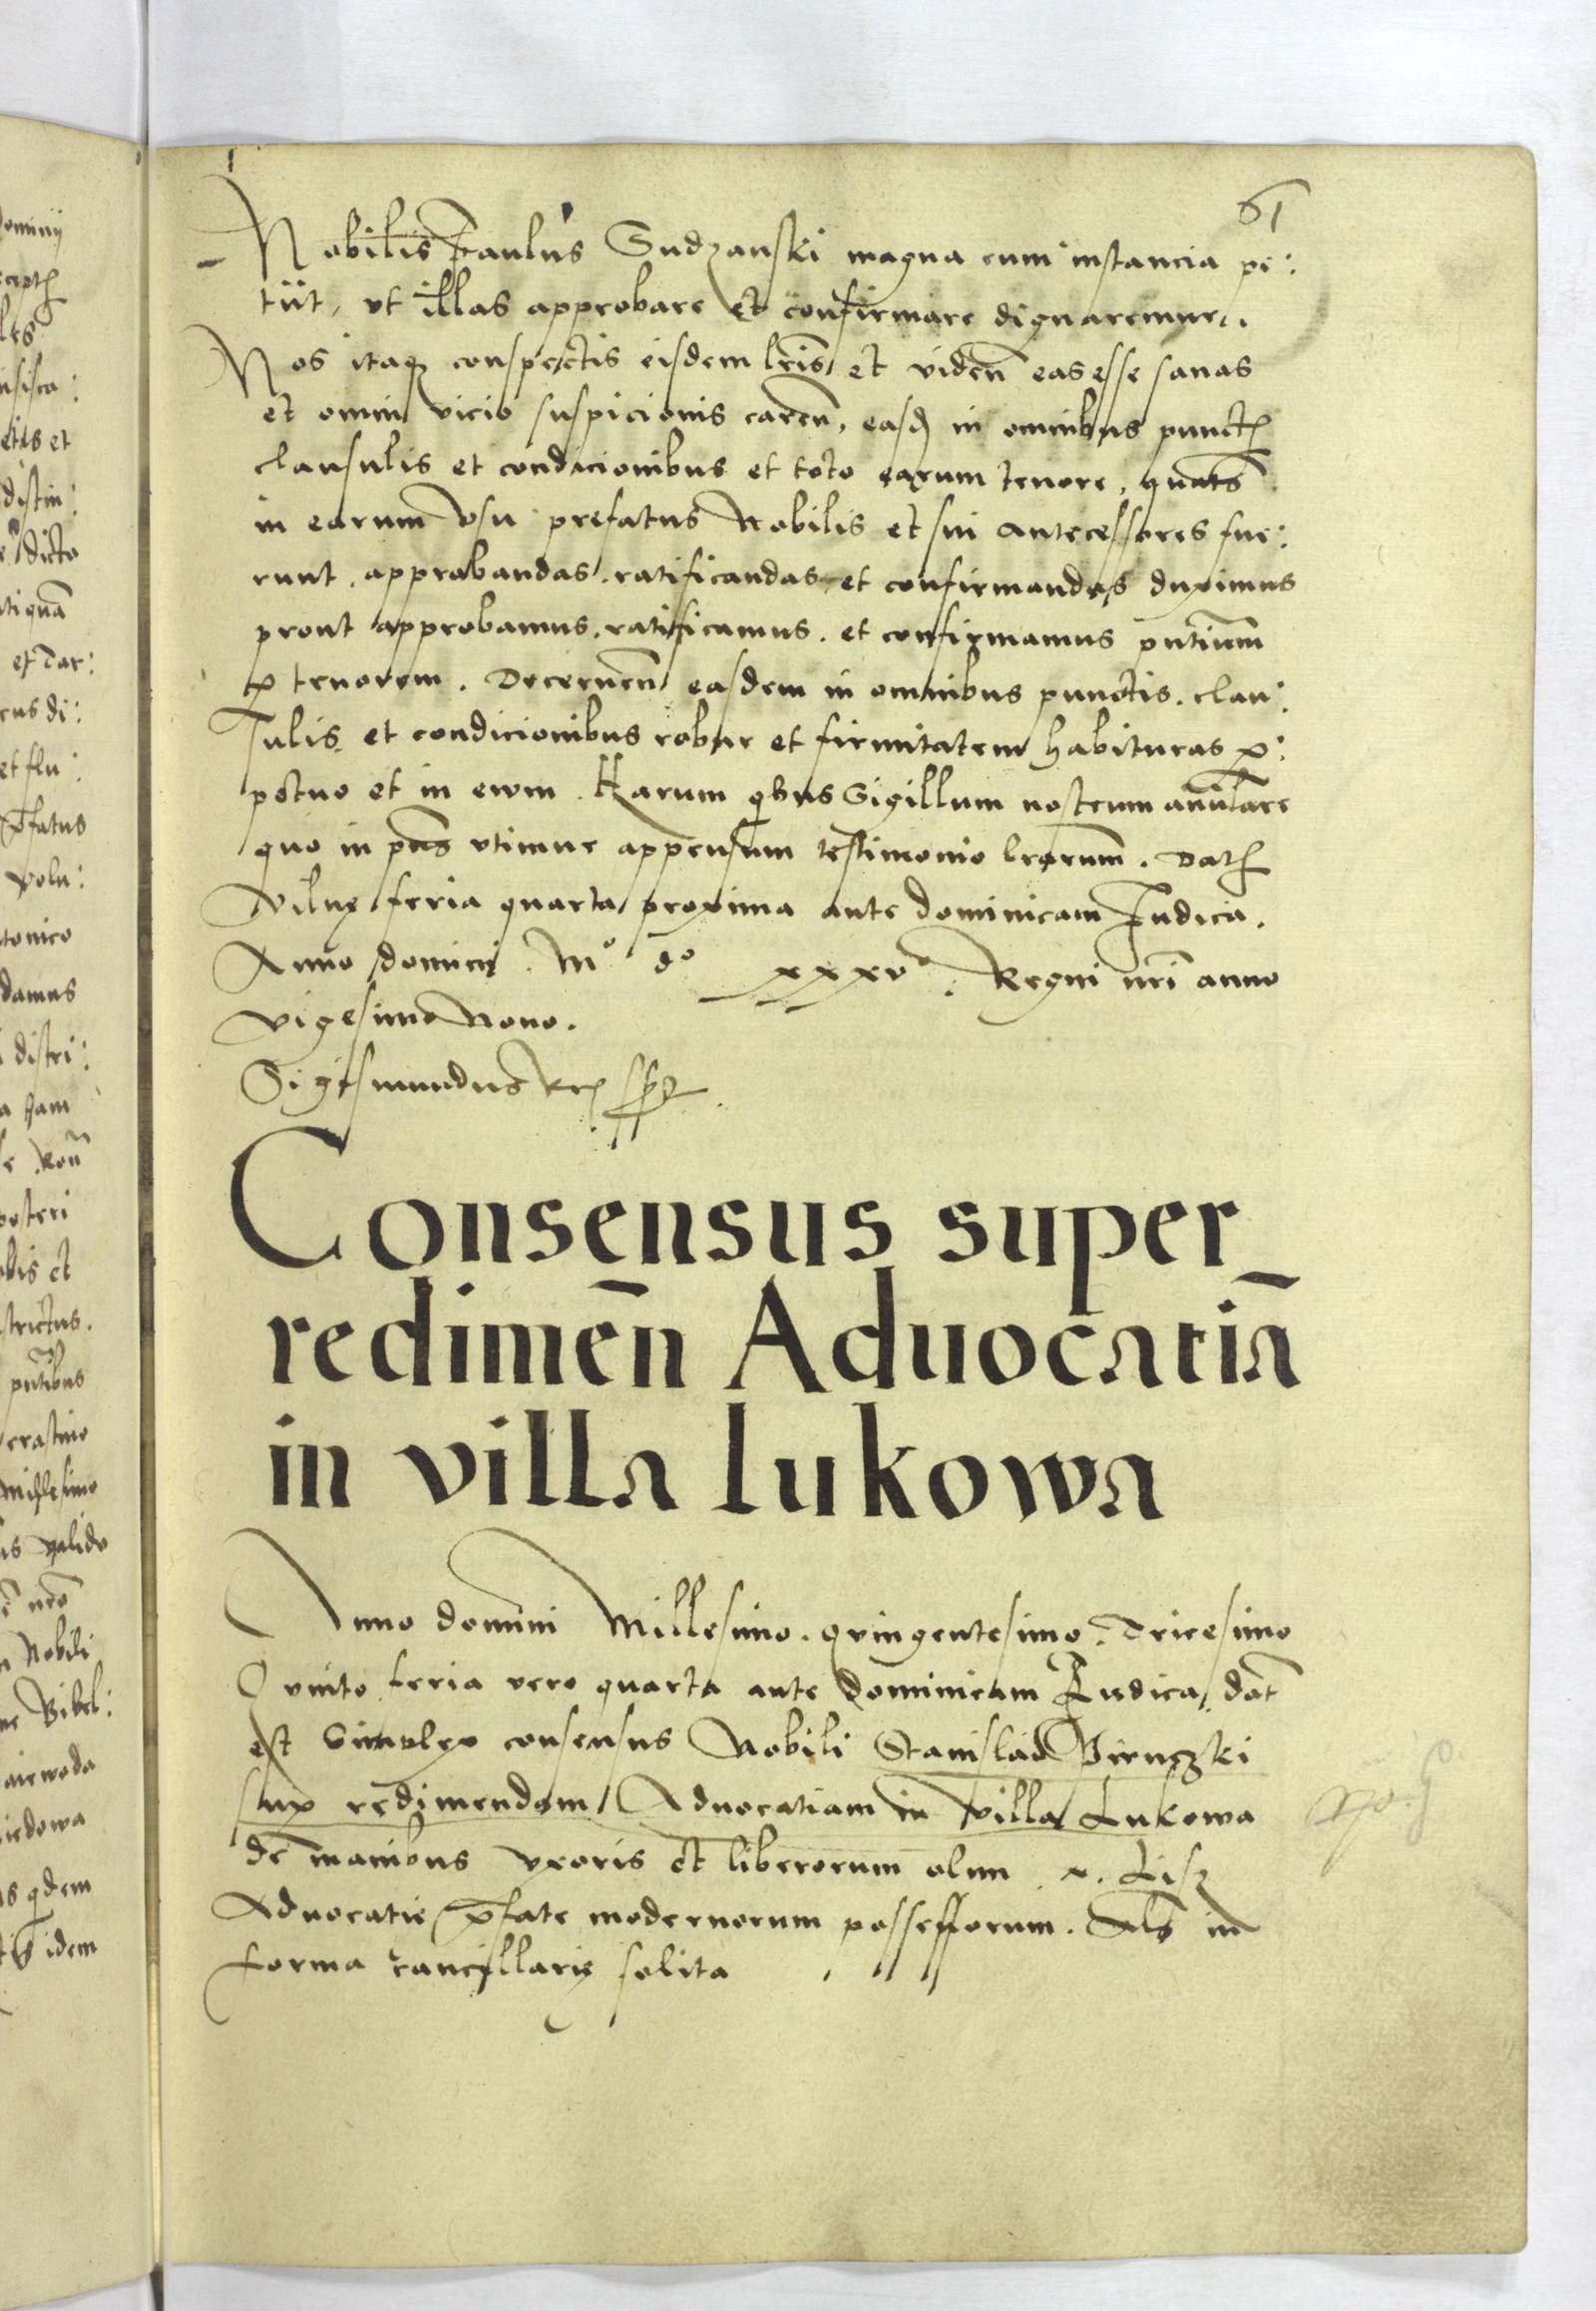 61
Nobilis Paulus Sudzanski magna cum instancia pe:
tiit, ut illas approbare et confirmare dignaremur.
Nos itaq conspectis eisdem lris et viden eas esse sanas
et omni vicio suspicionis caren, easd in omnibus punct
clausulis et condicionibus et toto earum tenore, quats
in earum usu prefatus Nobilis et sui antecessores fue:
runt, approbandas, ratificandas et confirmandas duximus
prout approbamus, ratificamus, et confirmamus pntium
p tenorem. Decernen easdem in omnibus punctis, clau:
sulis et condicionibus robur et firmitatem habituras p:
petuo et in ewm. Harum qbus Sigillum nostrum anulare
quo in pns utimur appensum testimonio lrarum. Dat
Vilnę feria quarta proxima ante dominicam Judica.
Anno domini. Mº dº xxxvº. Regni nri anno
vigesimo Nono.
Sigismundus Rex sspt.
Consensus super
redimen̄ Aduocatiā
in villa lukowa
Anno domini Millesimo. qvingentesimo. Tricesimo
Qvinto feria vero quarta ante Dominicam Judica, dat
est Simplex consensus Nobili Stanislao
sup redimendam Advocatiam in villa Lukowa
de manibus uxoris et liberorum olim . N. Lisz
Advocatie pfate modernorum possessorum. Als in
forma cancellarię solita